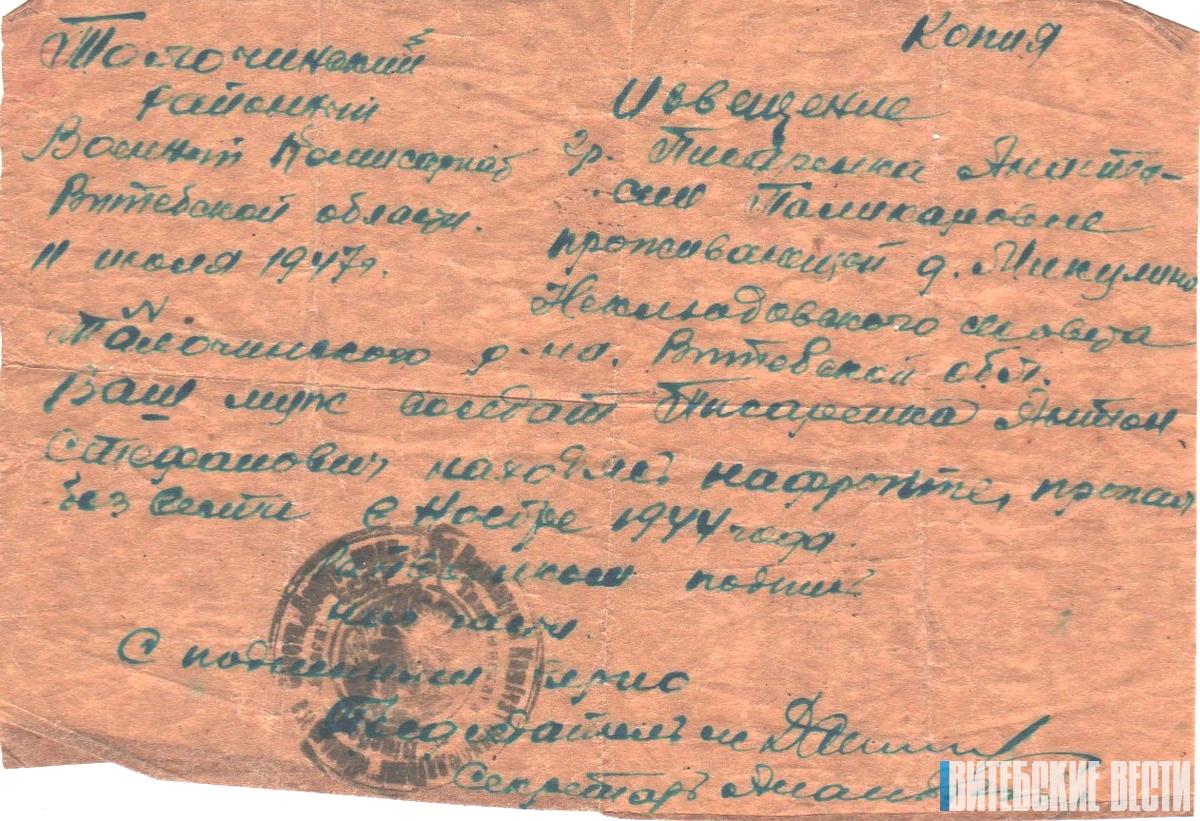 Копия
Толочинский
районный
Военный Комисариат
Витебской области.
11 июля 1947г.
N
Извещение
гр. Писаренка Анаста-
сии Паликаровне
проживающей д. Микулино
Неклюдовского с/совета
Талочинского р-на. Витебской обл.
Ваш муж солдат Писаренка Антон
Стефанович находясь на фронте, пропал
без вести в Ноябре 1944 года.
Райвоенком подпис
С подлинным верно
Председатель
Секретарь
ВИТЕБСКИЕ ВЕСТИ